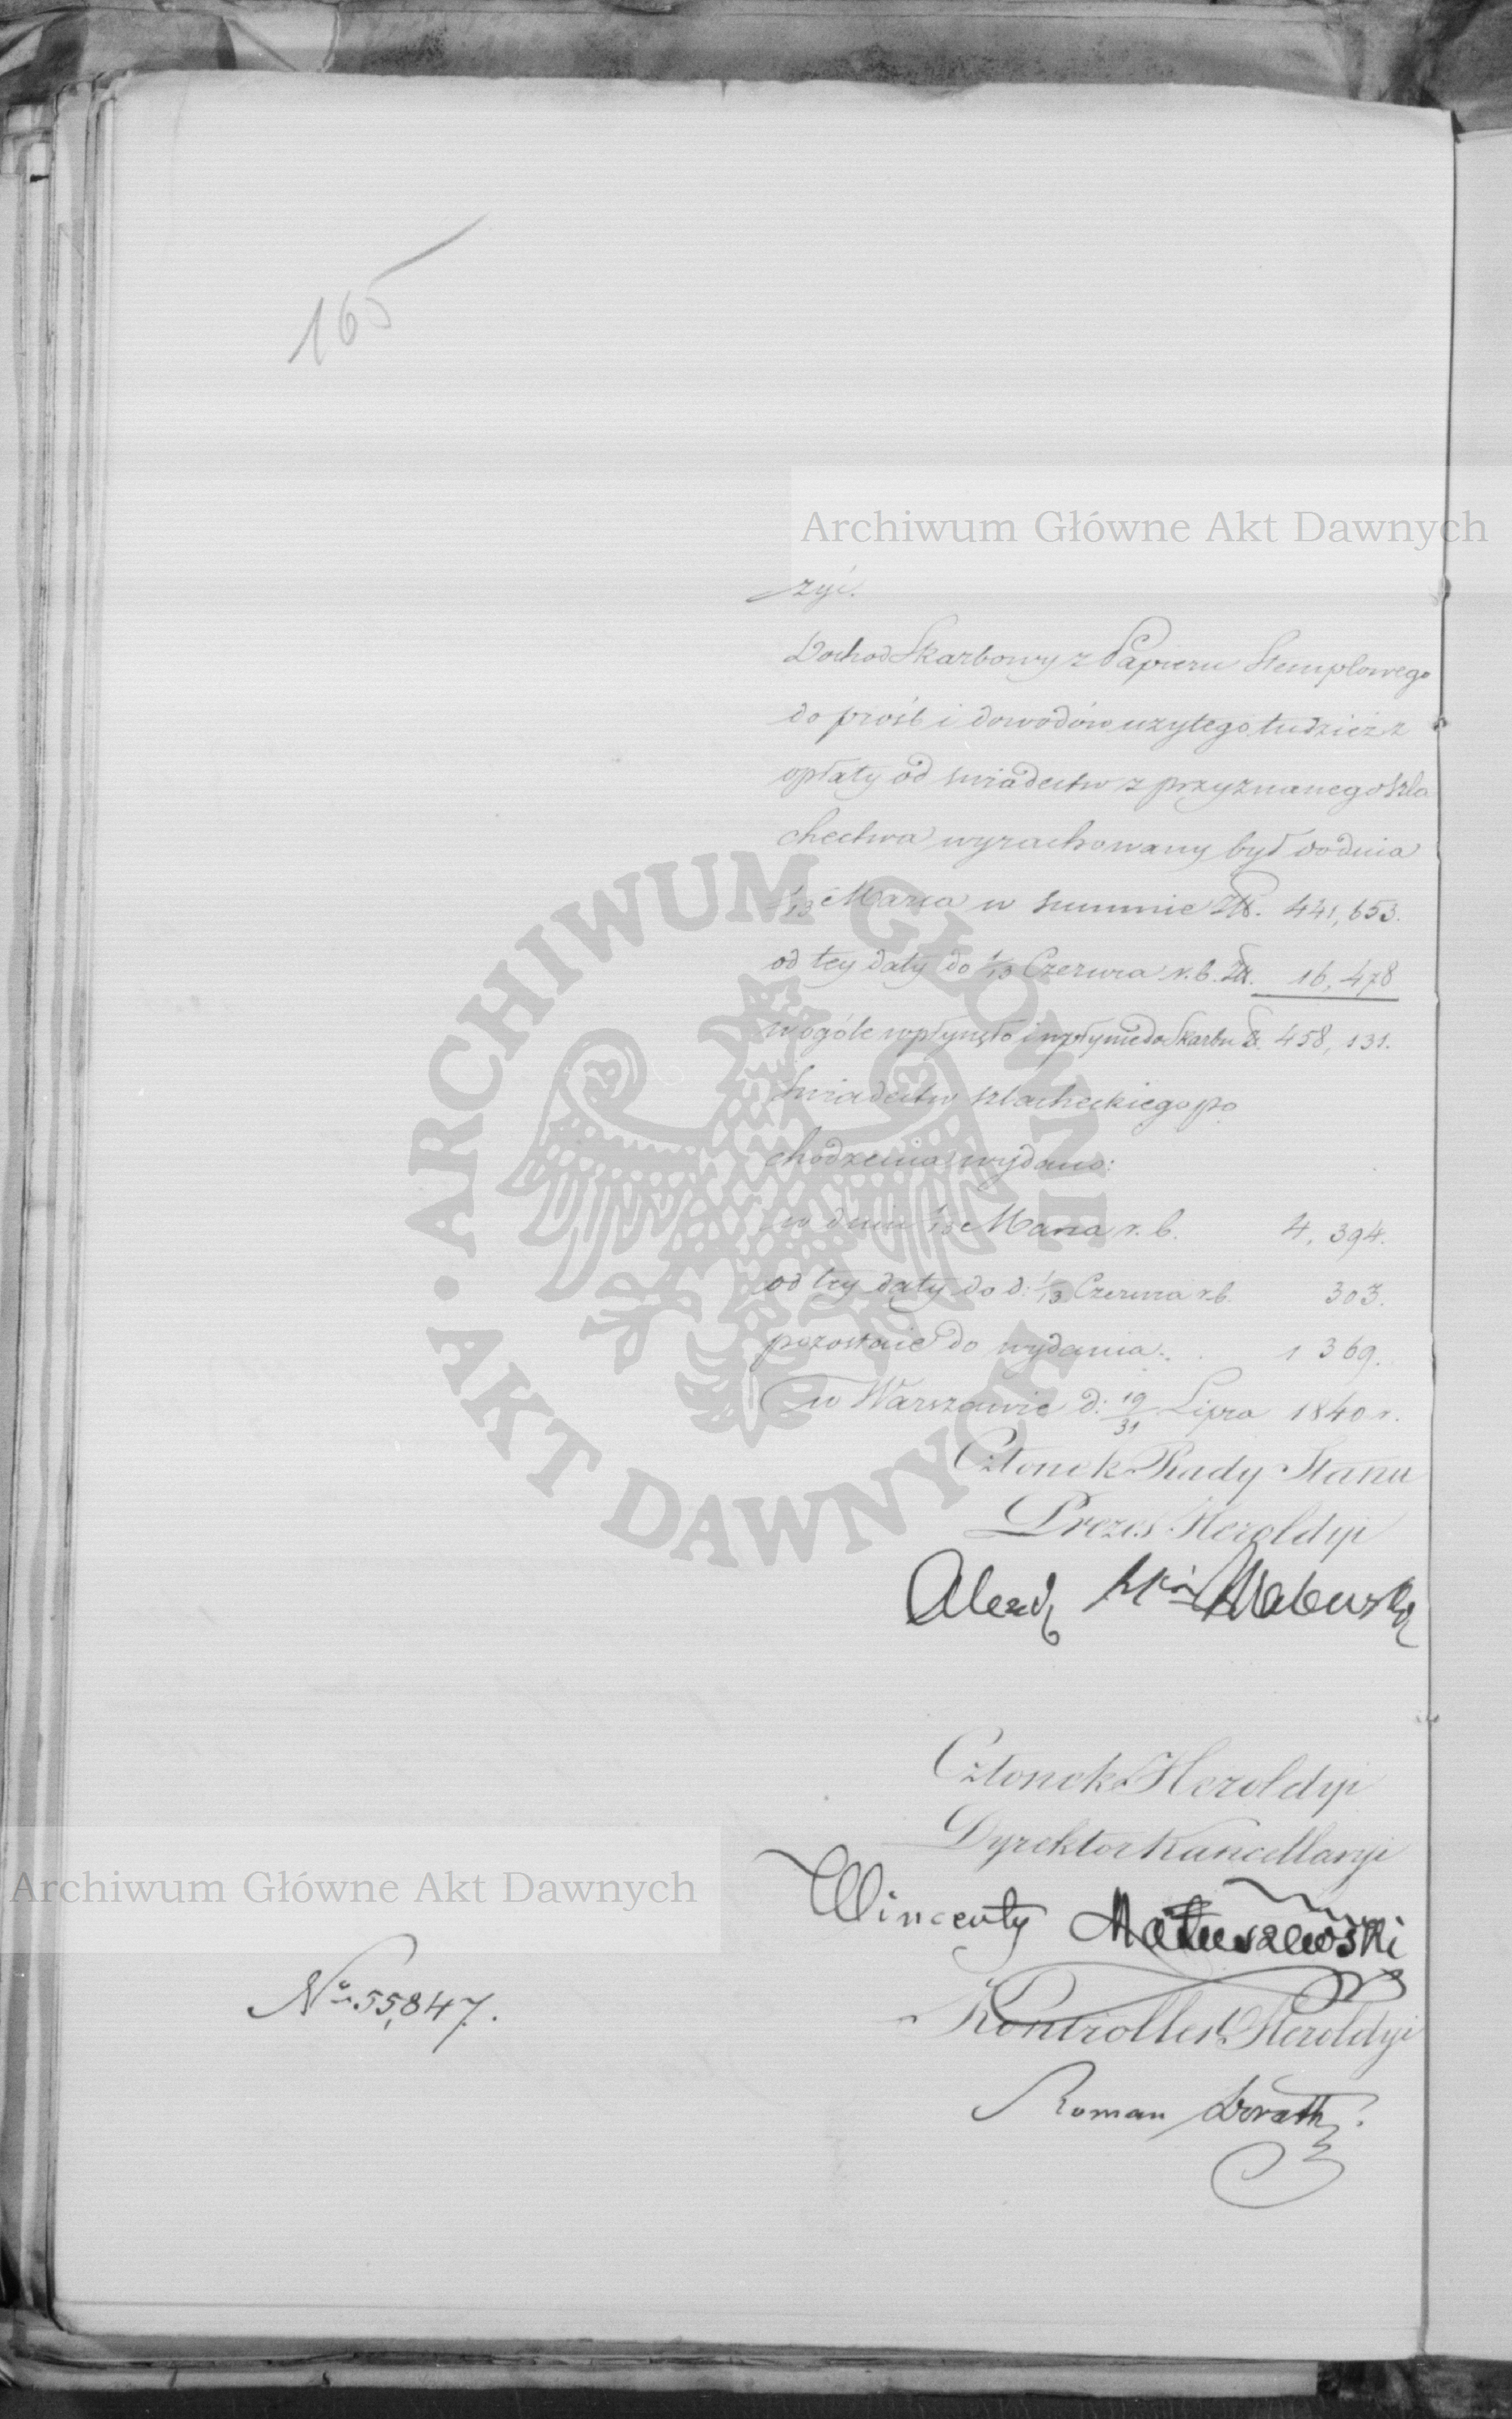 165
Archiwum Główne Akt Dawnych
żyć.
Dochod Skarbowy z Papieru Stemplowego
do prośb i dowodów użytego tudzież z
opłaty od świadectw z przyznanego szla
chectwa wyrachowany był do dnia
1/13 Marca w summie Złt. 441,653.
od tey daty do 1/13 Czerwca r. b. Złt. 16,478
w ogóle wpłynęło i wpłynie do Skarbu Zł. 458,131.
Świadectw szlacheckiego po
chodzenia wydano:
w dniu 1/13 Marca r. b. 4,394.
od tey daty do d: 1/13 Czerwca r. b. 303.
pozostaie do wydania. 1 369.
w Warszawie d: 19/31 Lipca 1840 r.
Członek Rady Stanu
Prezes Heroldyi
Członek Heroldyi
Dyrektor Kancellaryi
Wincenty Matuszewski
Archiwum Główne Akt Dawnych
No 55,847.
Kontroller Heroldyi
Roman
ARCHIWUM GŁÓWNE • AKT DAWNYCH •